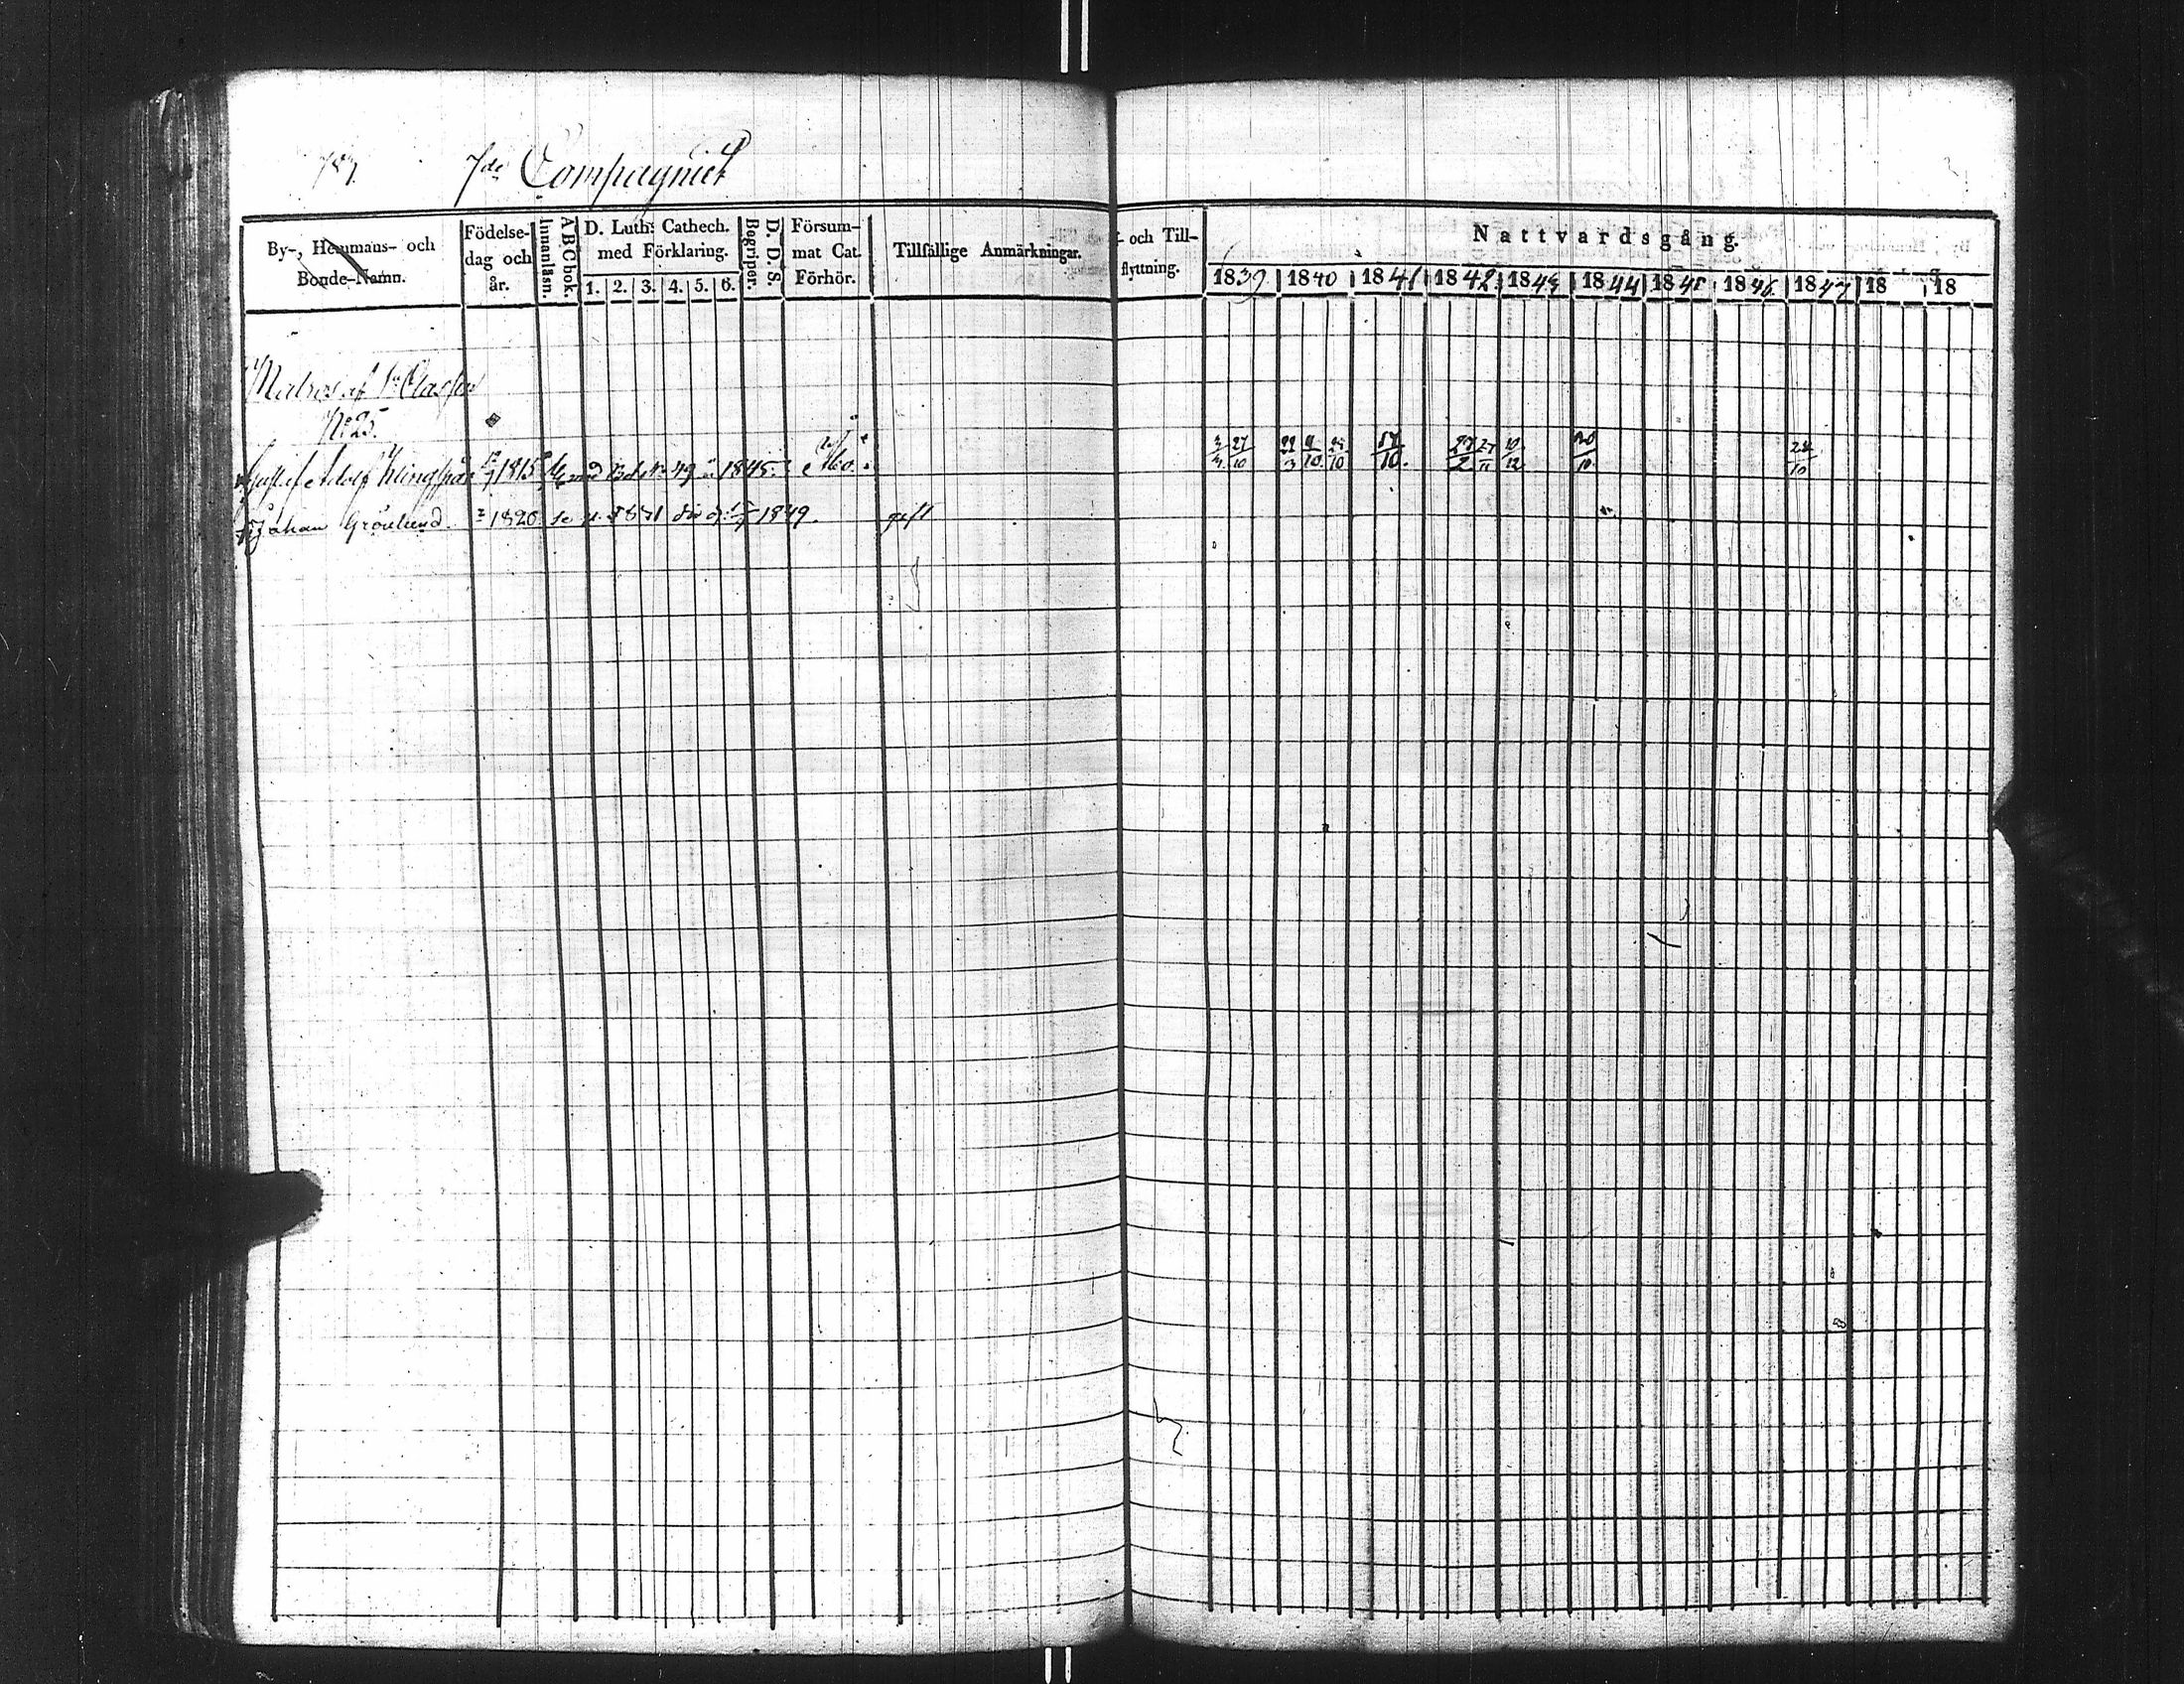 787. 7de Compagniet
By-, Hemmans- och Bonde-Namn.
Födelse-dag och år.
Innanläsn.
A B C bok.
D. Luth: Cathech. med Förklaring.
1. 2. 3. 4. 5. 6.
Begriper.
D. D. S.
Försum-mat Cat. Förhör.
Tillfällige Anmärkningar.
- och Till-flyttning.
Nattvardsgång.
1839 1840 1841 1842 1843 1844 1845 1846 1847 18 18
Matros af 1a Classen
No 25.
Gustaf Adolf Klingspår 1815 1845. Åbo.
3/3 27/10 22/3 4/10 25/10 17/10. 27/2 27/11 10/12 20/10 24/10
Johan Grönlund. 1820 1849. gift